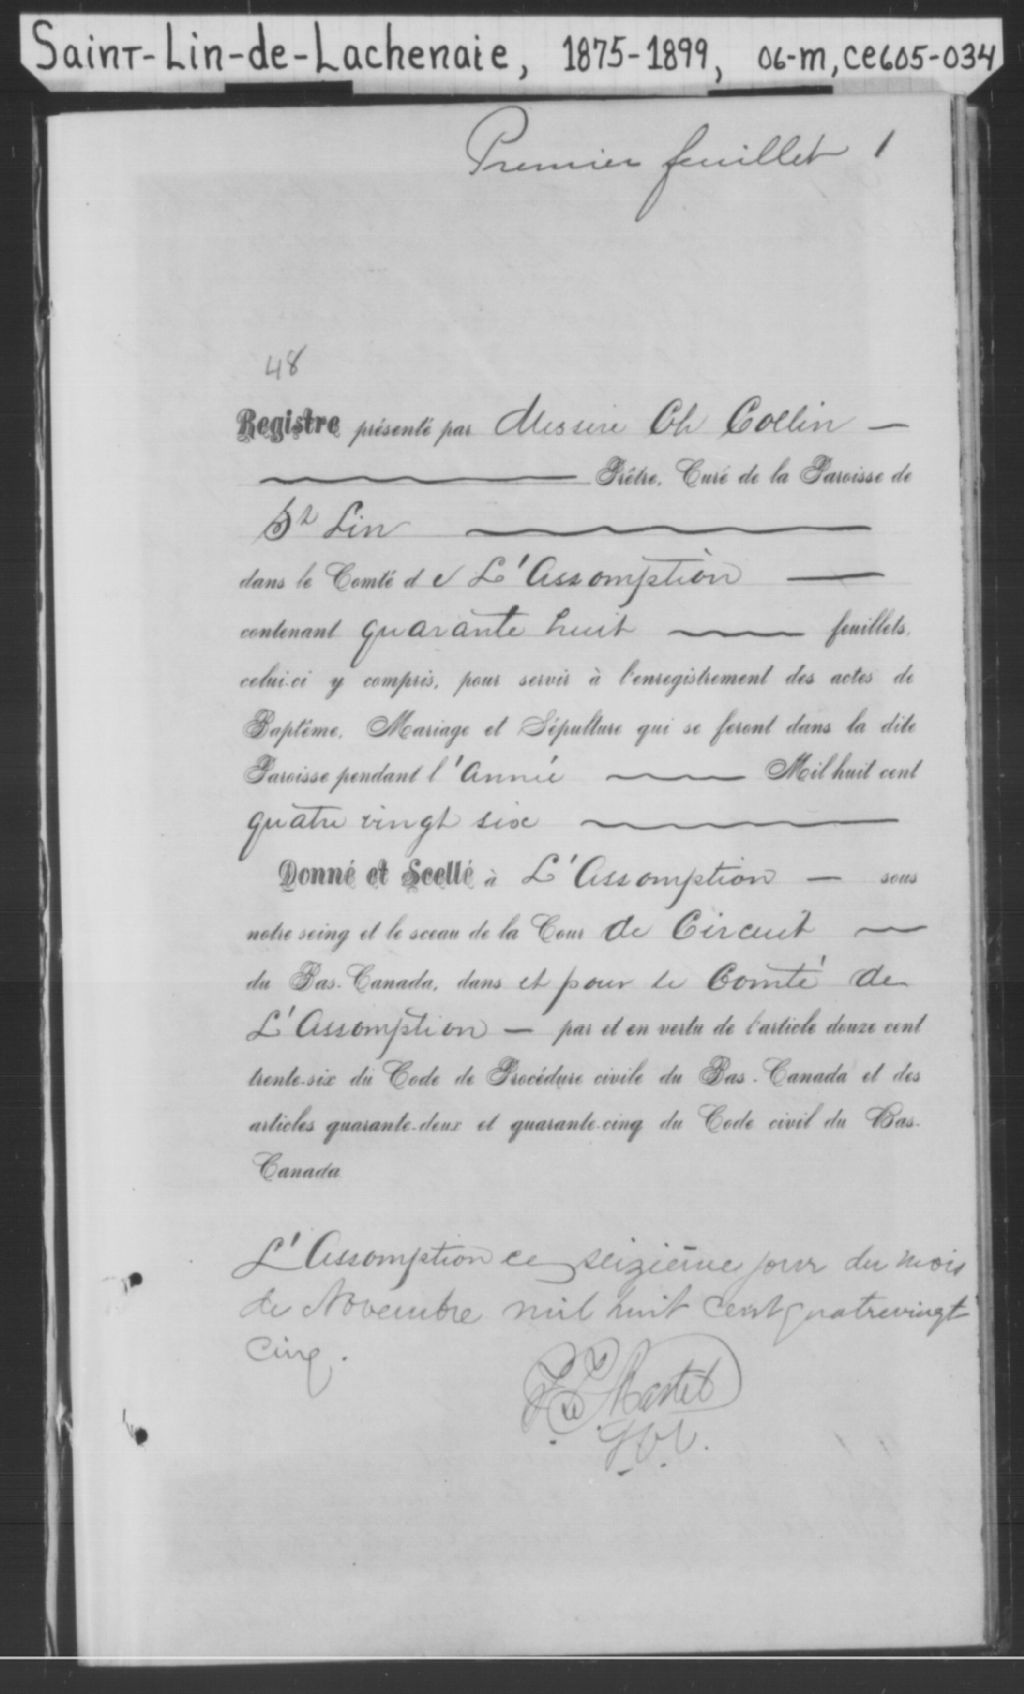 Saint-Lin-de-Lachenaie, 1875-1899, 06-M, CE605-034
Premier feuillet 1
48
Registre présenté par Messire Ch Collin
Prêtre, Curé de la Paroisse de
St Lin
dans le Comté de L'Assomption
contenant quarante huit feuillets,
celui-ci y compris, pour servir à l'enregistrement des actes de
Baptême, Mariage et Sépulture qui se feront dans la dite
Paroisse pendant l'année Mil huit cent
quatre vingt six
Donné et Scellé à L'Assomption sous
notre seing et le sceau de la Cour de Circuit
du Bas-Canada, dans et pour le Comté de
L'Assomption par et en vertu de l'article douze cent
trente-six du Code de Procédure civile du Bas-Canada et des
articles quarante-deux et quarante-cinq du Code civil du Bas-
Canada
L'Assomption ce seizième jour du mois
de Novembre mil huit cent quatrevingt
cinq.
Martel